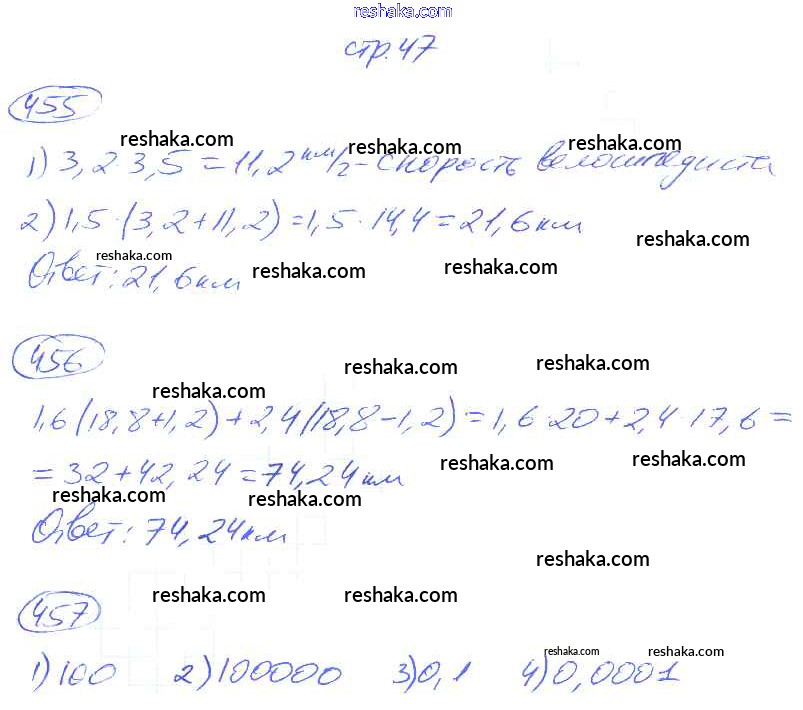 reshaka.com
стр. 47
455
reshaka.com reshaka.com reshaka.com
1) 3,2·3,5=11,2 км/ч - скорость велосипедиста
2) 1,5·(3,2+11,2)=1,5·14,4=21,6 км
reshaka.com reshaka.com reshaka.com reshaka.com
Ответ: 21,6 км
456
reshaka.com reshaka.com reshaka.com
1,6(18,8+1,2)+2,4(18,8-1,2)=1,6·20+2,4·17,6=
=32+42,24=74,24 км
reshaka.com reshaka.com reshaka.com reshaka.com
Ответ: 74,24 км
reshaka.com
457
reshaka.com reshaka.com
reshaka.com reshaka.com
1) 100 2) 100000 3) 0,1 4) 0,0001